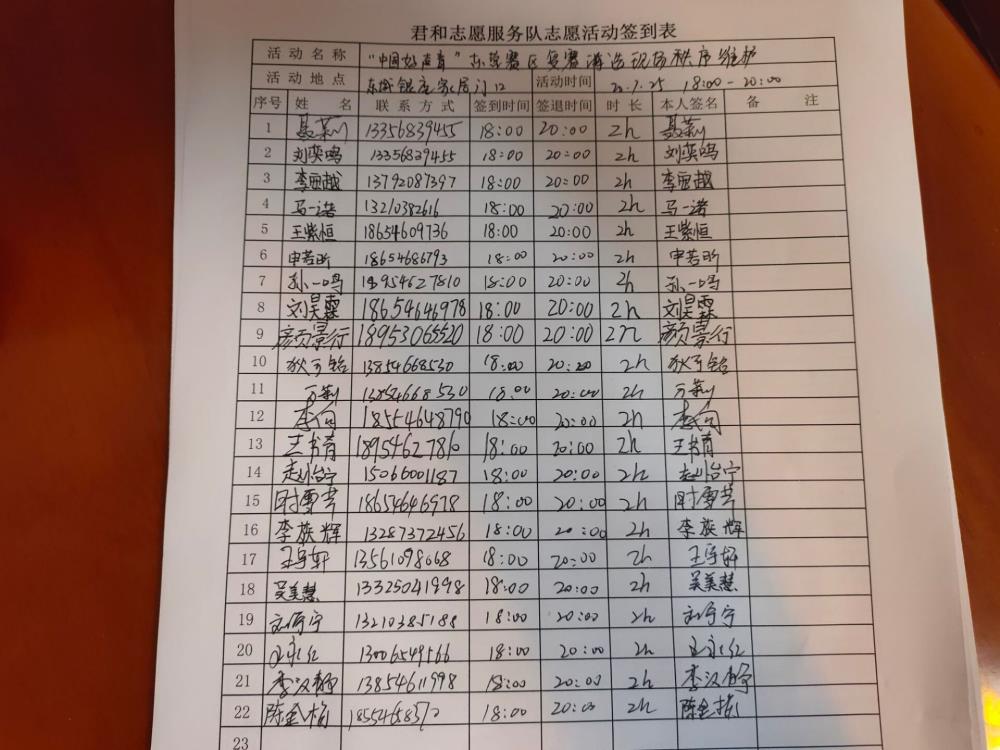 君和志愿服务队志愿活动签到表
活动名称 "中国好声音"东营赛区复赛海选现场秩序维护
活动地点 东城银座家居门口 活动时间 22.7.25 18:00-20:00
序号 姓名 联系方式 签到时间 签退时间 时长 本人签名 备注
1 聂莉 13356839455 18:00 20:00 2h 聂莉
2 刘奕鸣 13356839455 18:00 20:00 2h 刘奕鸣
3 李丽越 13792087397 18:00 20:00 2h 李丽越
4 马一诺 13210382616 18:00 20:00 2h 马一诺
5 王紫恒 18654609736 18:00 20:00 2h 王紫恒
6 申若昕 18654686793 18:00 20:00 2h 申若昕
7 孙一鸣 18954627810 18:00 20:00 2h 孙一鸣
8 刘昊霖 18654646978 18:00 20:00 2h 刘昊霖
9 颜景行 18953065520 18:00 20:00 2h 颜景行
10 狄可铭 13854668530 18:00 20:00 2h 狄可铭
11 万莉 13854668530 18:00 20:00 2h 万莉
12 18554648790 18:00 20:00 2h
13 王书育 18954627810 18:00 20:00 2h 王书育
14 赵怡宁 15066001187 18:00 20:00 2h 赵怡宁
15 时雪芹 18654646978 18:00 20:00 2h 时雪芹
16 李族辉 13287372456 18:00 20:00 2h 李族辉
17 王宇轩 13561098668 18:00 20:00 2h 王宇轩
18 吴美慧 13325041998 18:00 20:00 2h 吴美慧
19 13210385188 18:00 20:00 2h
20 13006549566 18:00 20:00 2h
21 李汉静 13854611998 18:00 20:00 2h 李汉静
22 陈金梅 18:00 20:00 2h 陈金梅
23